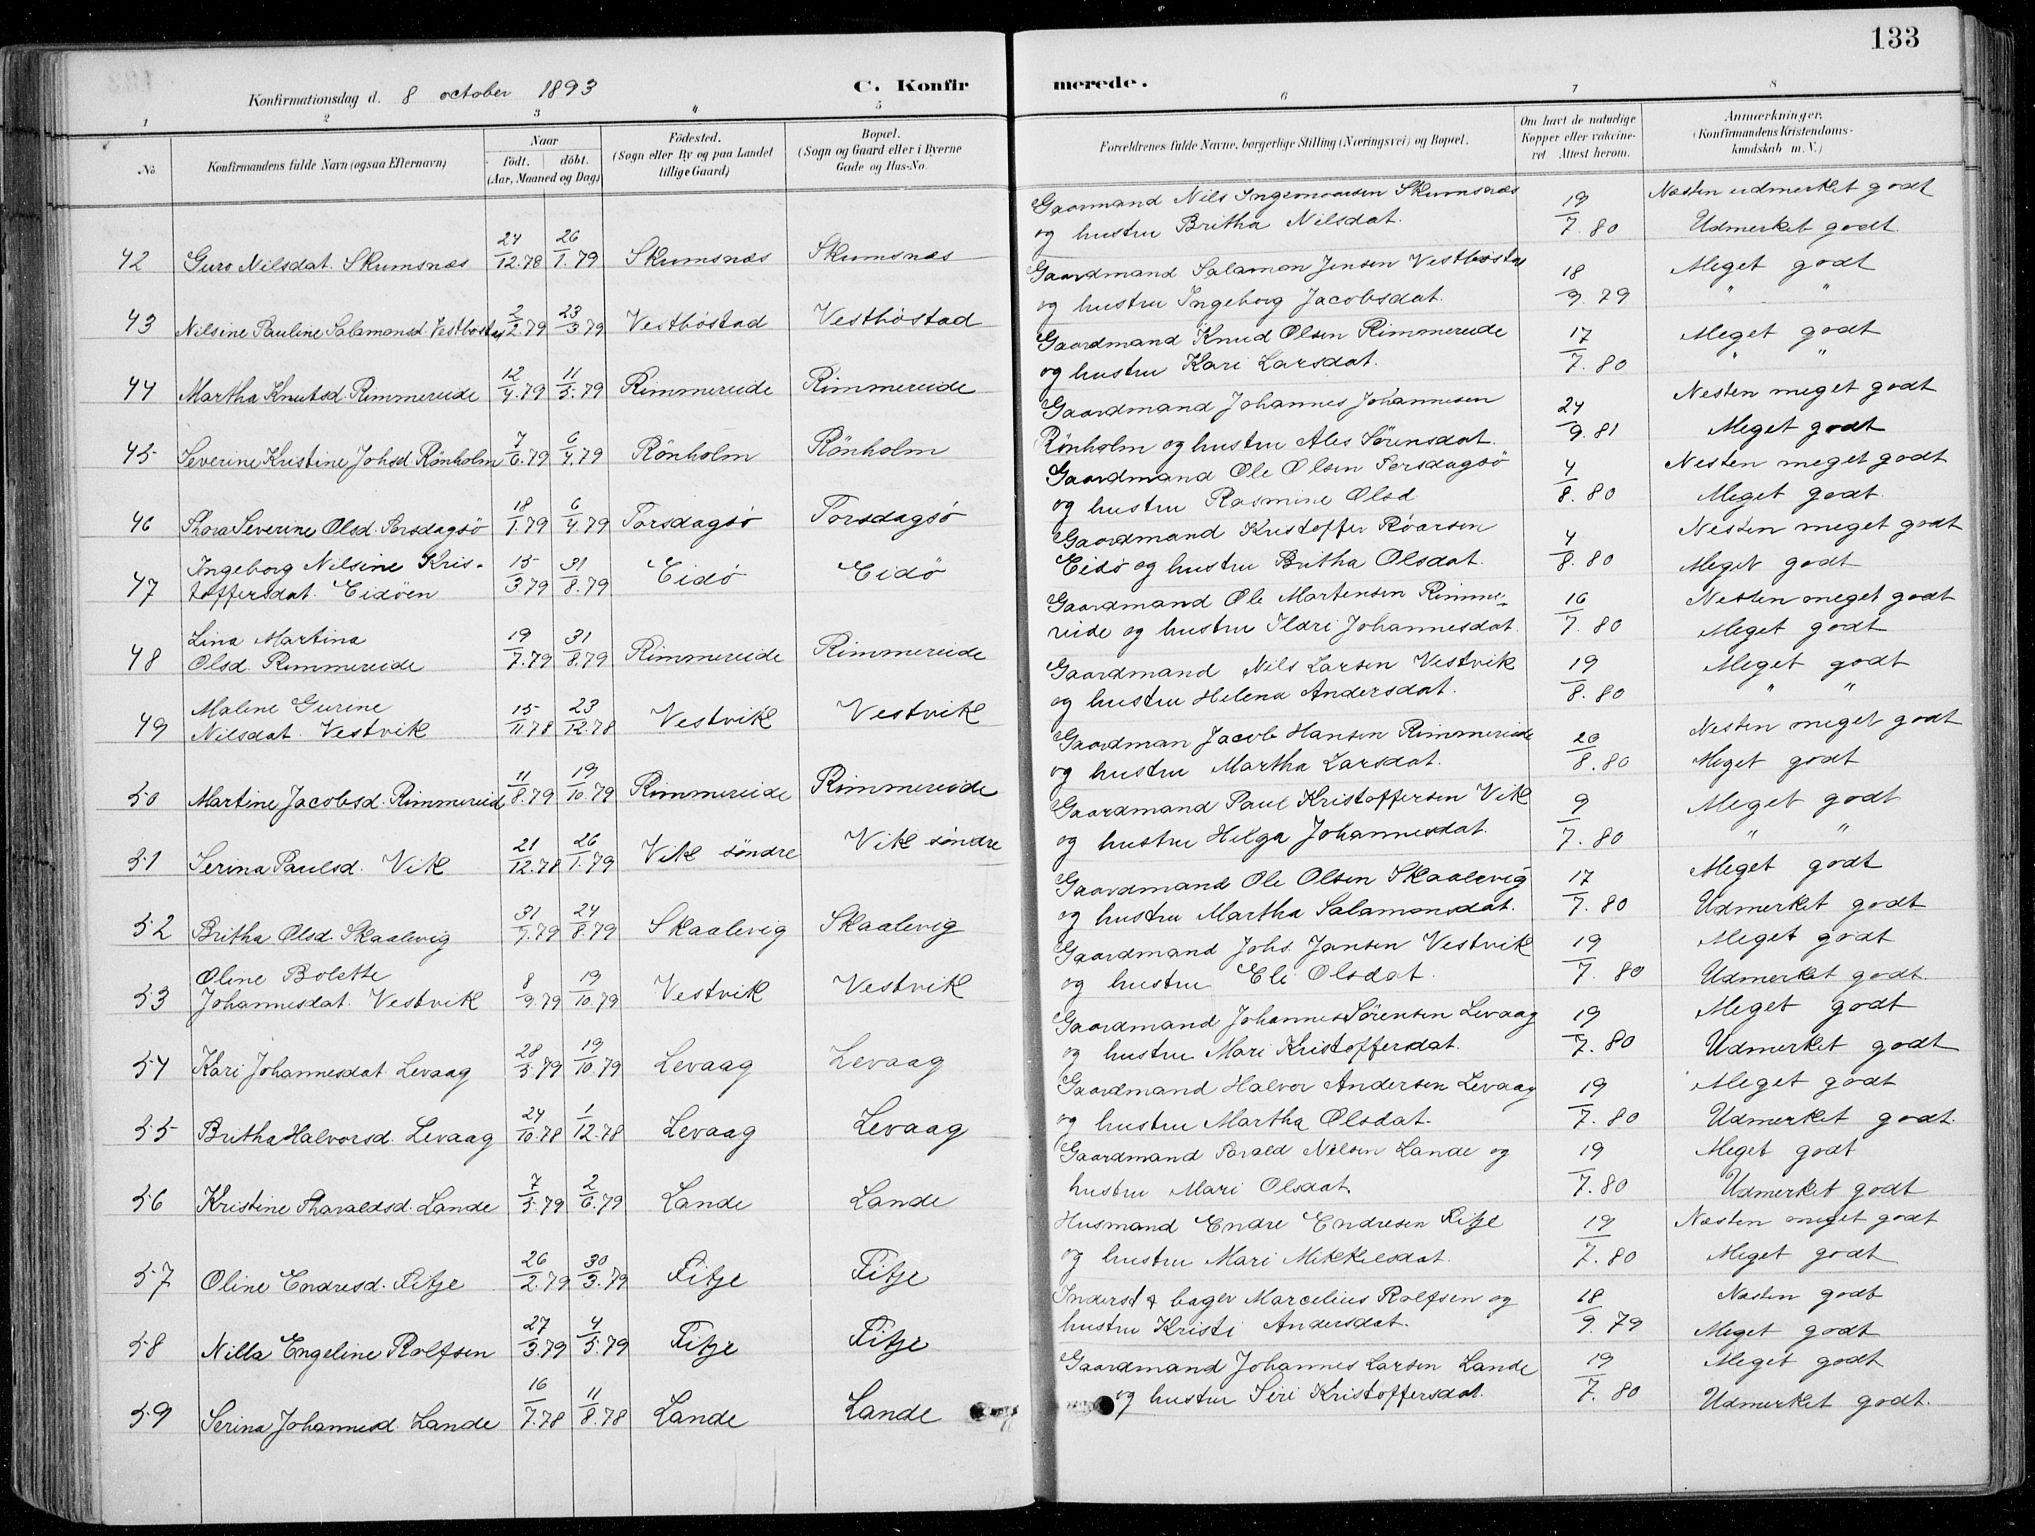 133
Konfirmationsdag d. 8 october 1893
C. Konfirmerede.
1 2 3 4 5 6 7 8
No. Konfirmandens fulde Navn (ogsaa Efternavn) Naar født. døbt. (Aar, Maaned og Dag) Fødested. (Sogn eller By og paa Landet tillige Gaard) Bopæl. (Sogn og Gaard eller i Byerne Gade og Hus-No. Forældrenes fulde Navne, borgerlige Stilling (Næringsvei) og Bopæl. Om havt de naturlige Kopper eller vakcineret. Attest herom. Anmærkninger. (Konfirmandens Kristendomskundskab m. V.)
42 Guro Nilsdat. Skumsnæs 24/12.78 26/1.79 Skumsnæs Skumsnæs Gaarmand Nils Ingemoarsen Skumsnæs 19/7.80 Næsten udmerket godt
og hustru Britha Nilsdat. Udmerket godt.
43 Nilsine Pauline Salamonsd. Vestbøstad 2/2.79 23/3.79 Vestbøstad Vestbøstad Gaardmand Salamon Jensen Vestbøstad 18/9.79 Meget godt
og hustru Ingeborg Jacobsdat. " "
44 Martha Knutsd. Rimmereide 12/4.79 11/5.79 Rimmereide Rimmereide Gaardmand Knud Olsen Rimmereide 17/7.80 Meget godt
og hustru Kari Larsdat. " "
45 Severine Kristine Johsd. Rønholm 7/6.79 6/4.79 Rønholm Rønholm Gaardmand Johannes Johannesen 24/9.81 Nesten meget godt
Rønholm og hustru Ales Sørensdat. Meget godt
46 Thora Severine Olsd. Torsdagsø 18/1.79 6/4.79 Torsdagsø Torsdagsø Gaardmand Ole Olsen Torsdagsø 4/8.80 Nesten meget godt
og hustru Rasmine Olsd Meget godt.
47 Ingeborg Nilsine Kris- 15/3.79 31/8.79 Eidø Eidø Gaardmand Kristoffer Roarsen 4/8.80 Nesten meget godt
toffersdat. Eidøen Eidø og hustru Britha Olsdat. Meget godt
48 Lina Martina 19/7.79 31/8.79 Rimmereide Rimmereide Gaardmand Ole Martensen Rimme- 16/7.80 Nesten meget godt
Olsd. Rimmereide reide og hustru Ildri Johannesdat. Meget godt
49 Maline Gurine 15/11.78 23/12.78 Vestvik Vestvik Gaardmand Nils Larsen Vestvik 19/8.80 Meget godt
Nilsdat. Vestvik og hustru Helena Andersdat. " "
50 Martine Jacobsd. Rimmereid 11/8.79 19/10.79 Rimmereide Rimmereide Gaardman Jacob Hansen Rimmereide 20/8.80 Nesten meget godt
og hustru Martha Larsdat. Meget godt
51 Serina Paulsd. Vik 21/12.78 26/1.79 Vik søndre Vik søndre Gaardmand Paul Kristoffersen Vik 9/7.80 Meget godt
og hustru Helga Johannesdat. " "
52 Britha Olsd. Skaalevig 31/7.79 24/8.79 Skaalevig Skaalevig Gaardmand Ole Olsen Skaalevig 17/7.80 Meget godt
og hustru Martha Salamonsdat. Udmerket godt
53 Oline Bolette 8/9.79 19/10.79 Vestvik Vestvik Gaardmand Johs. Jansen Vestvik 19/7.80 Meget godt
Johannesdat. Vestvik og hustru Eli Olsdat. Udmerket godt.
54 Kari Johannesdat Levaag 28/5.79 19/10.79 Levaag Levaag Gaardmand Johannes Sørensen Levaag 19/7.80 Meget godt
og hustru Mari Kristoffersdat. Udmerket godt
55 Britha Halvorsd. Levaag 24/10.78 1/12.78 Levaag Levaag Gaardmand Halvor Andersen Levaag 19/7.80 Meget godt
og hustru Martha Olsdat. Udmerket godt.
56 Kristine Tharaldsd. Lande 7/5.79 2/6.79 Lande Lande Gaardmand Tarald Nilsen Lande og 19/7.80 Meget godt
hustru Mari Olsdat Udmerket godt
57 Oline Endresd. Fitje 26/2.79 30/3.79 Fitje Fitje Husmand Endre Endresen Fitje 19/7.80 Næsten meget godt
og hustru Mari Mikkelsdat. Meget godt
58 Nilla Engeline Rolfsen 27/3.79 4/5.79 Fitje Fitje Inderst & bager Marcelius Rolfsen og 18/9.79 Næsten godt
hustru Kristi Andersdat. Meget godt
59 Serina Johannesd. Lande 16/7.78 11/8.78 Lande Lande Gaardmand Johannes Larsen Lande 19/7.80 Meget godt
og hustru Siri Kristoffersdat. Udmerket godt.